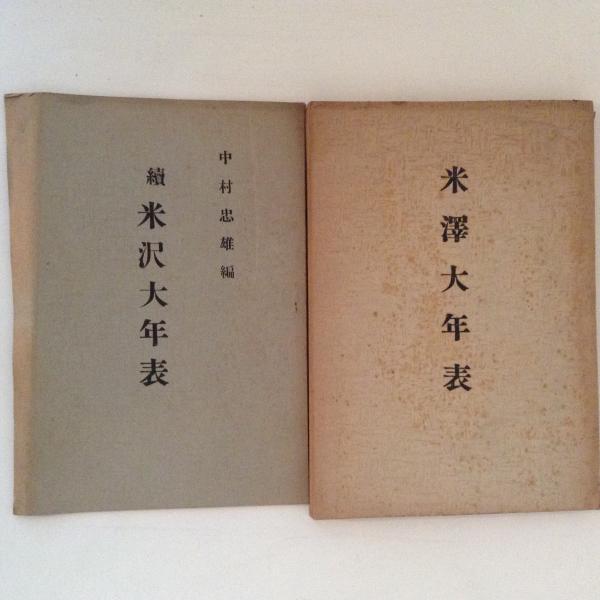 米澤大年表
中村忠雄編
續米沢大年表